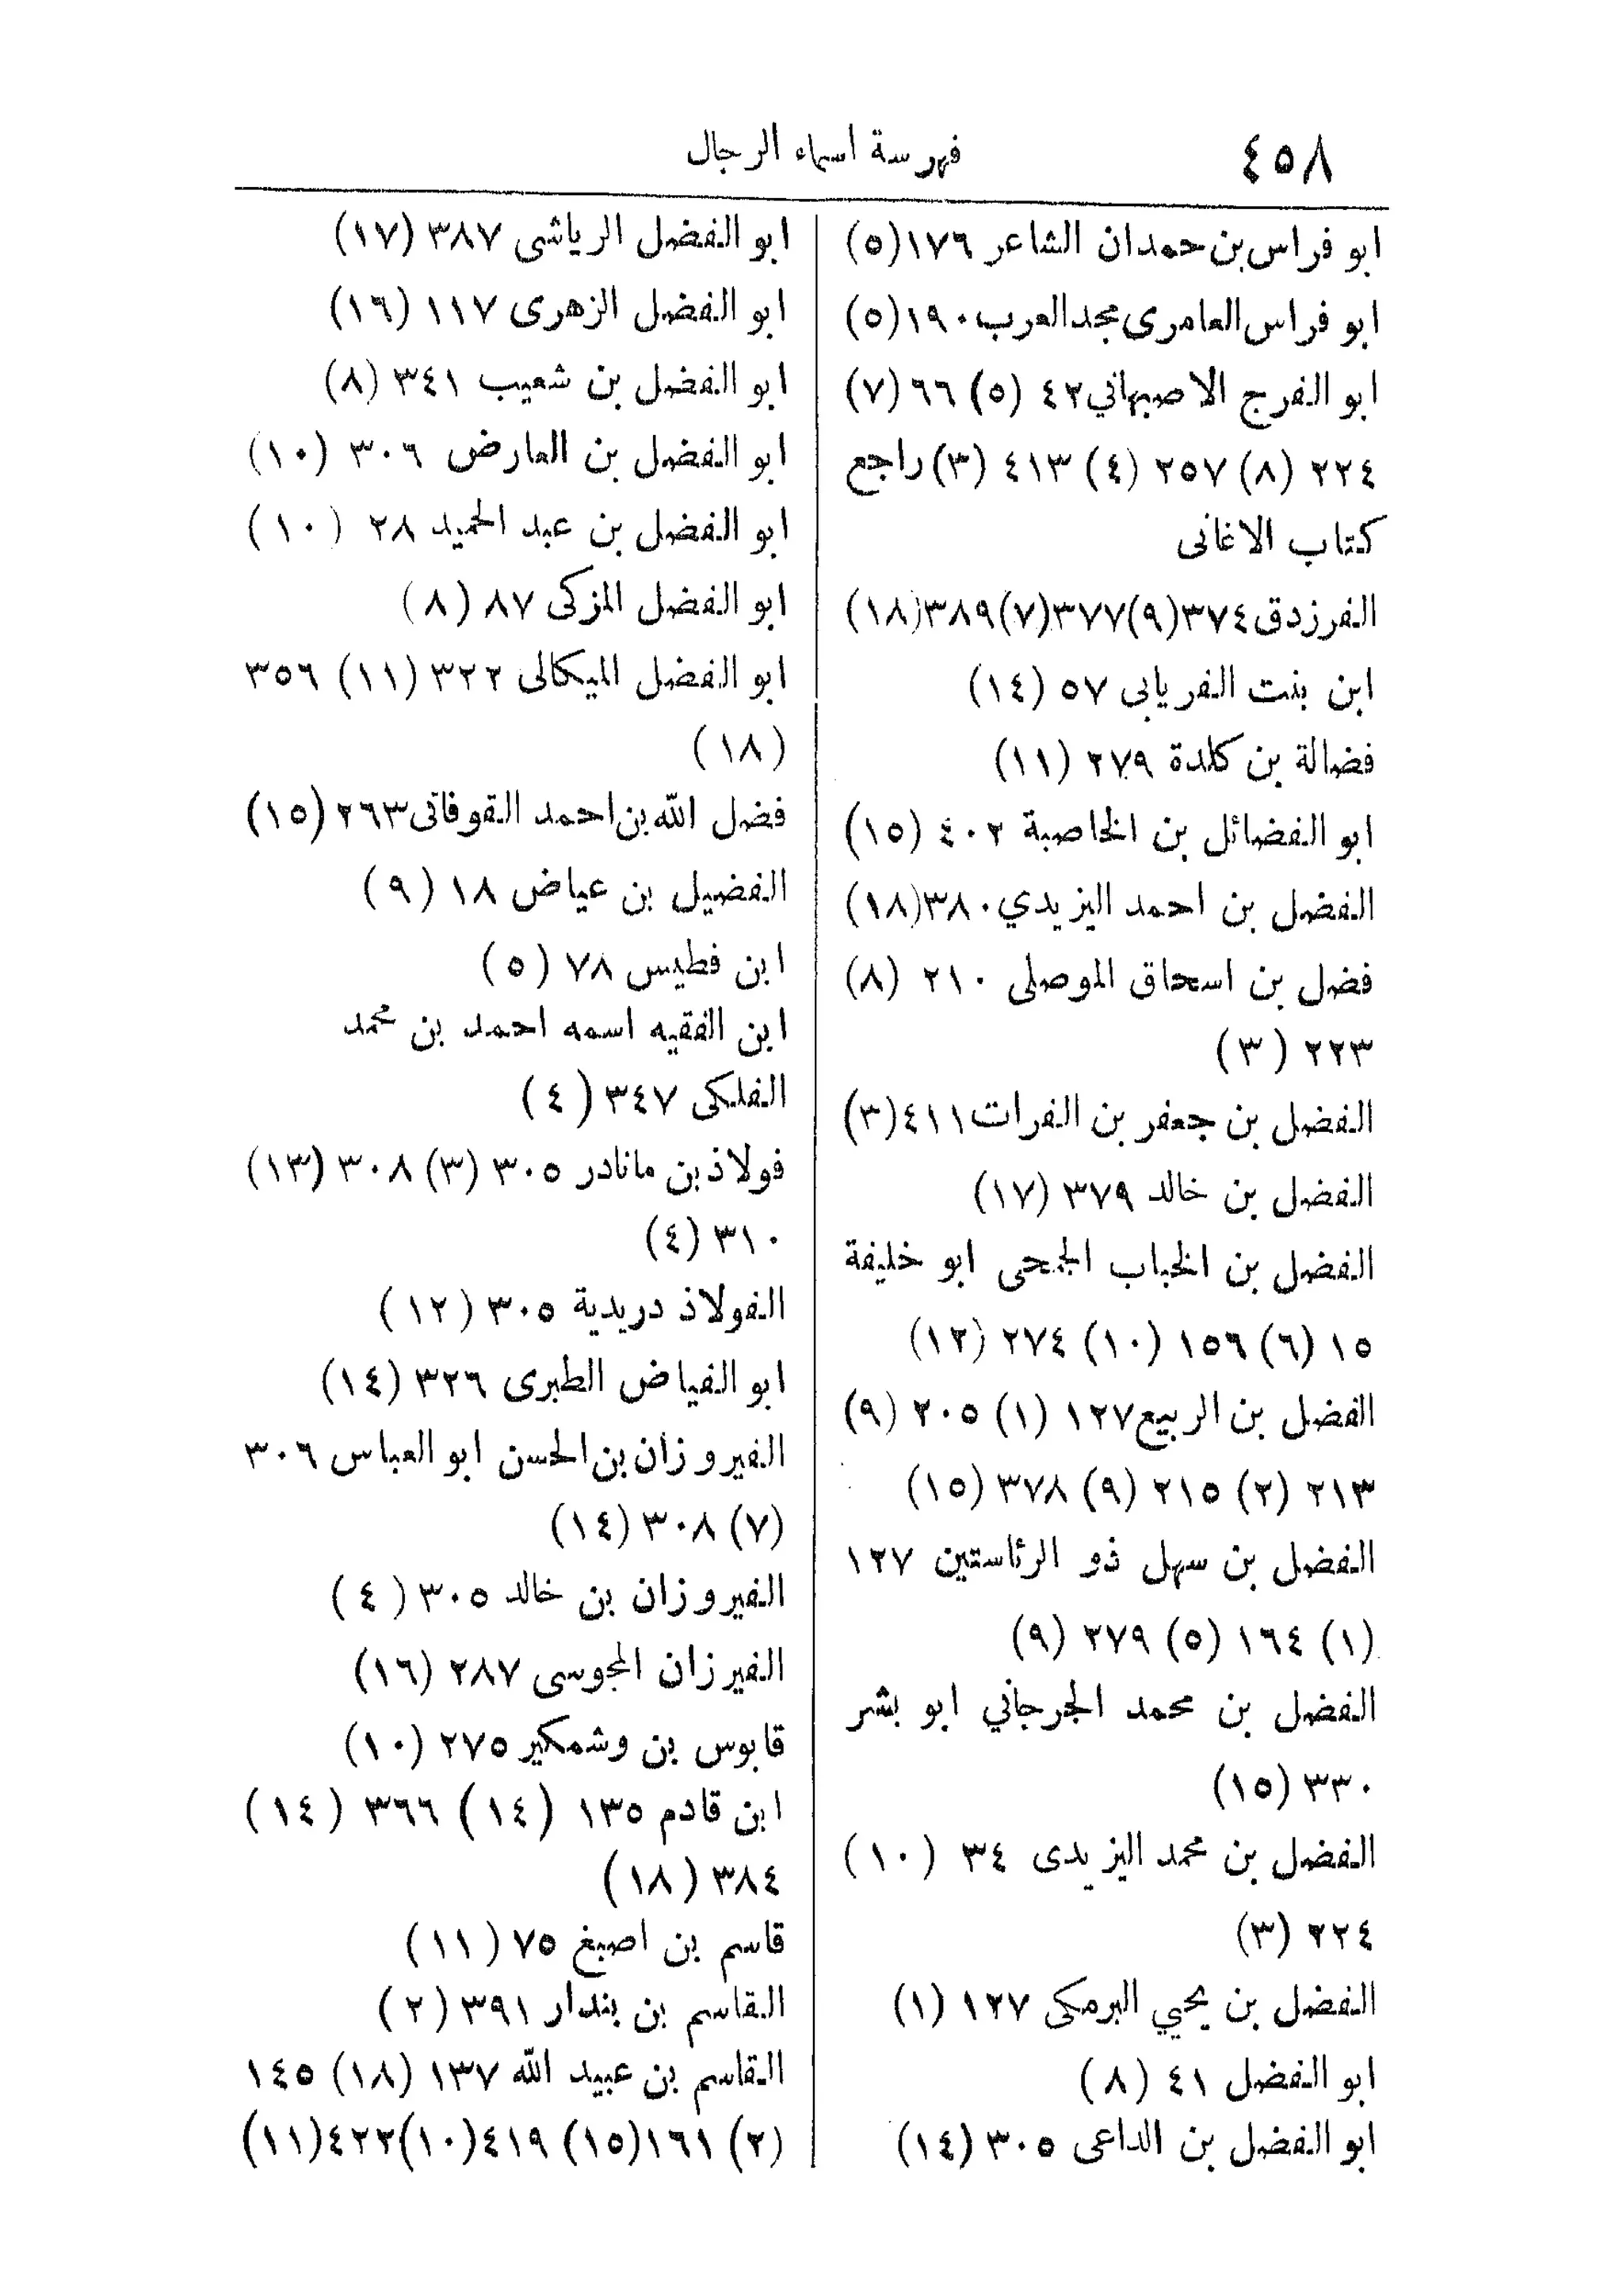 ٤٥٨
فهرسة اسماء الرجال
ابو فراس بن حمدان الشاعر ١٧٦ (٥)
ابو فراس العامرى مجد العرب ١٩٠ (٥)
ابو الفرج الاصبهاني ٤٢ (٥) ٦٦ (٧)
٢٢٤ (٨) ٢٥٧ (٤) ٤١٣ (٣) راجع
كتاب الاغانى
الفرزدق ٣٧٤ (٩) ٣٧٧ (٧) ٣٨٩ (١٨)
ابن بنت الفريابى ٥٧ (١٤)
فضالة بن كلدة ٢٧٩ (١١)
ابو الفضائل بن الخاصبة ٤٠٢ (١٥)
الفضل بن احمد اليزيدي ٣٨٠ (١٨)
فضل بن اسحاق الموصلى ٢١٠ (٨)
٢٢٣ (٣)
الفضل بن جعفر بن الفرات ٤١١ (٣)
الفضل بن خالد ٣٧٩ (١٧)
الفضل بن الخباب الجمحى ابو خليفة
١٥ (٦) ١٥٦ (١٠) ٢٧٤ (١٢)
الفضل بن الربيع ١٢٧ (١) ٢٠٥ (٩)
٢١٣ (٢) ٢١٥ (٩) ٣٧٨ (١٥)
الفضل بن سهل ذو الرئاستين ١٢٧
(١) ١٦٤ (٥) ٢٧٩ (٩)
الفضل بن محمد الجرجاني ابو بشر
٣٣٠ (١٥)
الفضل بن محمد اليزيدى ٣٤ (١٠)
٢٢٤ (٣)
الفضل بن يحيي البرمكى ١٢٧ (١)
ابو الفضل ٤١ (٨)
ابو الفضل بن الداعى ٣٠٥ (١٤)
ابو الفضل الرياشى ٣٨٧ (١٧)
ابو الفضل الزهرى ١١٧ (١٦)
ابو الفضل بن شعيب ٣٤١ (٨)
ابو الفضل بن العارض ٣٠٦ (١٠)
ابو الفضل بن عبد الحميد ٢٨ (١٠)
ابو الفضل المزكى ٨٧ (٨)
ابو الفضل الميكالى ٣٢٢ (١١) ٣٥٦
(١٨)
فضل الله بن احمد القوفاتى ٢٦٣ (١٥)
الفضيل بن عياض ١٨ (٩)
ابن فطيس ٧٨ (٥)
ابن الفقيه اسمه احمد بن محمد
الفلكى ٣٤٧ (٤)
فولاذ بن مانادر ٣٠٥ (٣) ٣٠٨ (١٣)
٣١٠ (٤)
الفولاذ دريدية ٣٠٥ (١٢)
ابو الفياض الطبرى ٣٢٦ (١٤)
الفيروزان بن الحسن ابو العباس ٣٠٦
(٧) ٣٠٨ (١٤)
الفيروزان بن خالد ٣٠٥ (٤)
الفيرزان المجوسى ٢٨٧ (١٦)
قابوس بن وشمكير ٢٧٥ (١٠)
ابن قادم ١٣٥ (١٤) ٣٦٦ (١٤)
٣٨٤ (١٨)
قاسم بن اصبغ ٧٥ (١١)
القاسم بن بندار ٣٩١ (٢)
القاسم بن عبيد الله ١٣٧ (١٨) ١٤٥
(٢) ١٦١ (١٥) ٤١٩ (١٠) ٤٢٢ (١١)